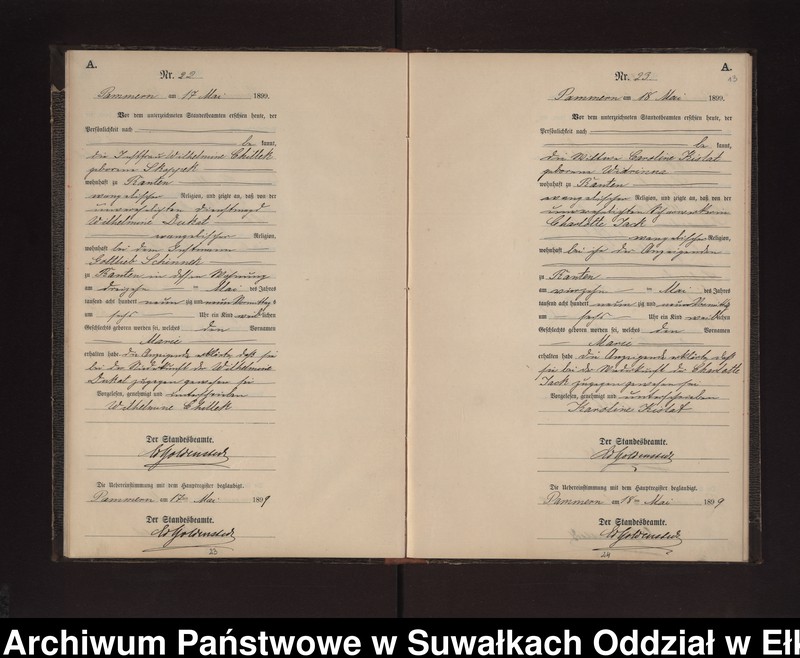 A.
Nr. 22
Pammern am 17 Mai 1899.
Vor dem unterzeichneten Standesbeamten erschien heute, der
Persönlichkeit nach
be kannt,
die Wilhelmine Chittek
geborene Skoppek
wohnhaft zu Ranten
evangelischer Religion, und zeigte an, daß von der
unverehelichten Dienstmagd
Wilhelmine Dukat
evangelischer Religion,
wohnhaft bei dem
Gottlieb Schinnek
zu Ranten in dessen Wohnung
am dreizehn ten Mai des Jahres
tausend acht hundert neunzig und neun Vormittags
um sechs Uhr ein Kind weiblichen
Geschlechts geboren worden sei, welches den Vornamen
Marie
erhalten habe die Anzeigende erklärte, daß sie
bei der Niederkunft der Wilhelmine
Dukat zugegen gewesen sei
Vorgelesen, genehmigt und unterschrieben
Wilhelmine Chittek
Der Standesbeamte.
Ed Goldenstede
Die Uebereinstimmung mit dem Hauptregister beglaubigt.
Pammern am 17ten Mai 1899
Der Standesbeamte.
Ed Goldenstede
23
A.
Nr. 23
Pammern am 18 Mai 1899.
Vor dem unterzeichneten Standesbeamten erschien heute, der
Persönlichkeit nach
be kannt,
die Wittwe Caroline Kistat
geborene
wohnhaft zu Ranten
evangelischer Religion, und zeigte an, daß von der
unverehelichten
Charlotte Jack
evangelischer Religion,
wohnhaft bei ihr der Anzeigenden
zu Ranten
am vierzehn ten Mai des Jahres
tausend acht hundert neunzig und neun Vormittags
um sechs Uhr ein Kind weiblichen
Geschlechts geboren worden sei, welches den Vornamen
Marie
erhalten habe die Anzeigende erklärte daß
sie bei der Niederkunft der Charlotte
Jack zugegen gewesen sei
Vorgelesen, genehmigt und unterschrieben
Karoline Kistat
Der Standesbeamte.
Ed Goldenstede
Die Uebereinstimmung mit dem Hauptregister beglaubigt.
Pammern am 18ten Mai 1899
Der Standesbeamte.
Ed Goldenstede
24
Archiwum Państwowe w Suwałkach Oddział w Ełk